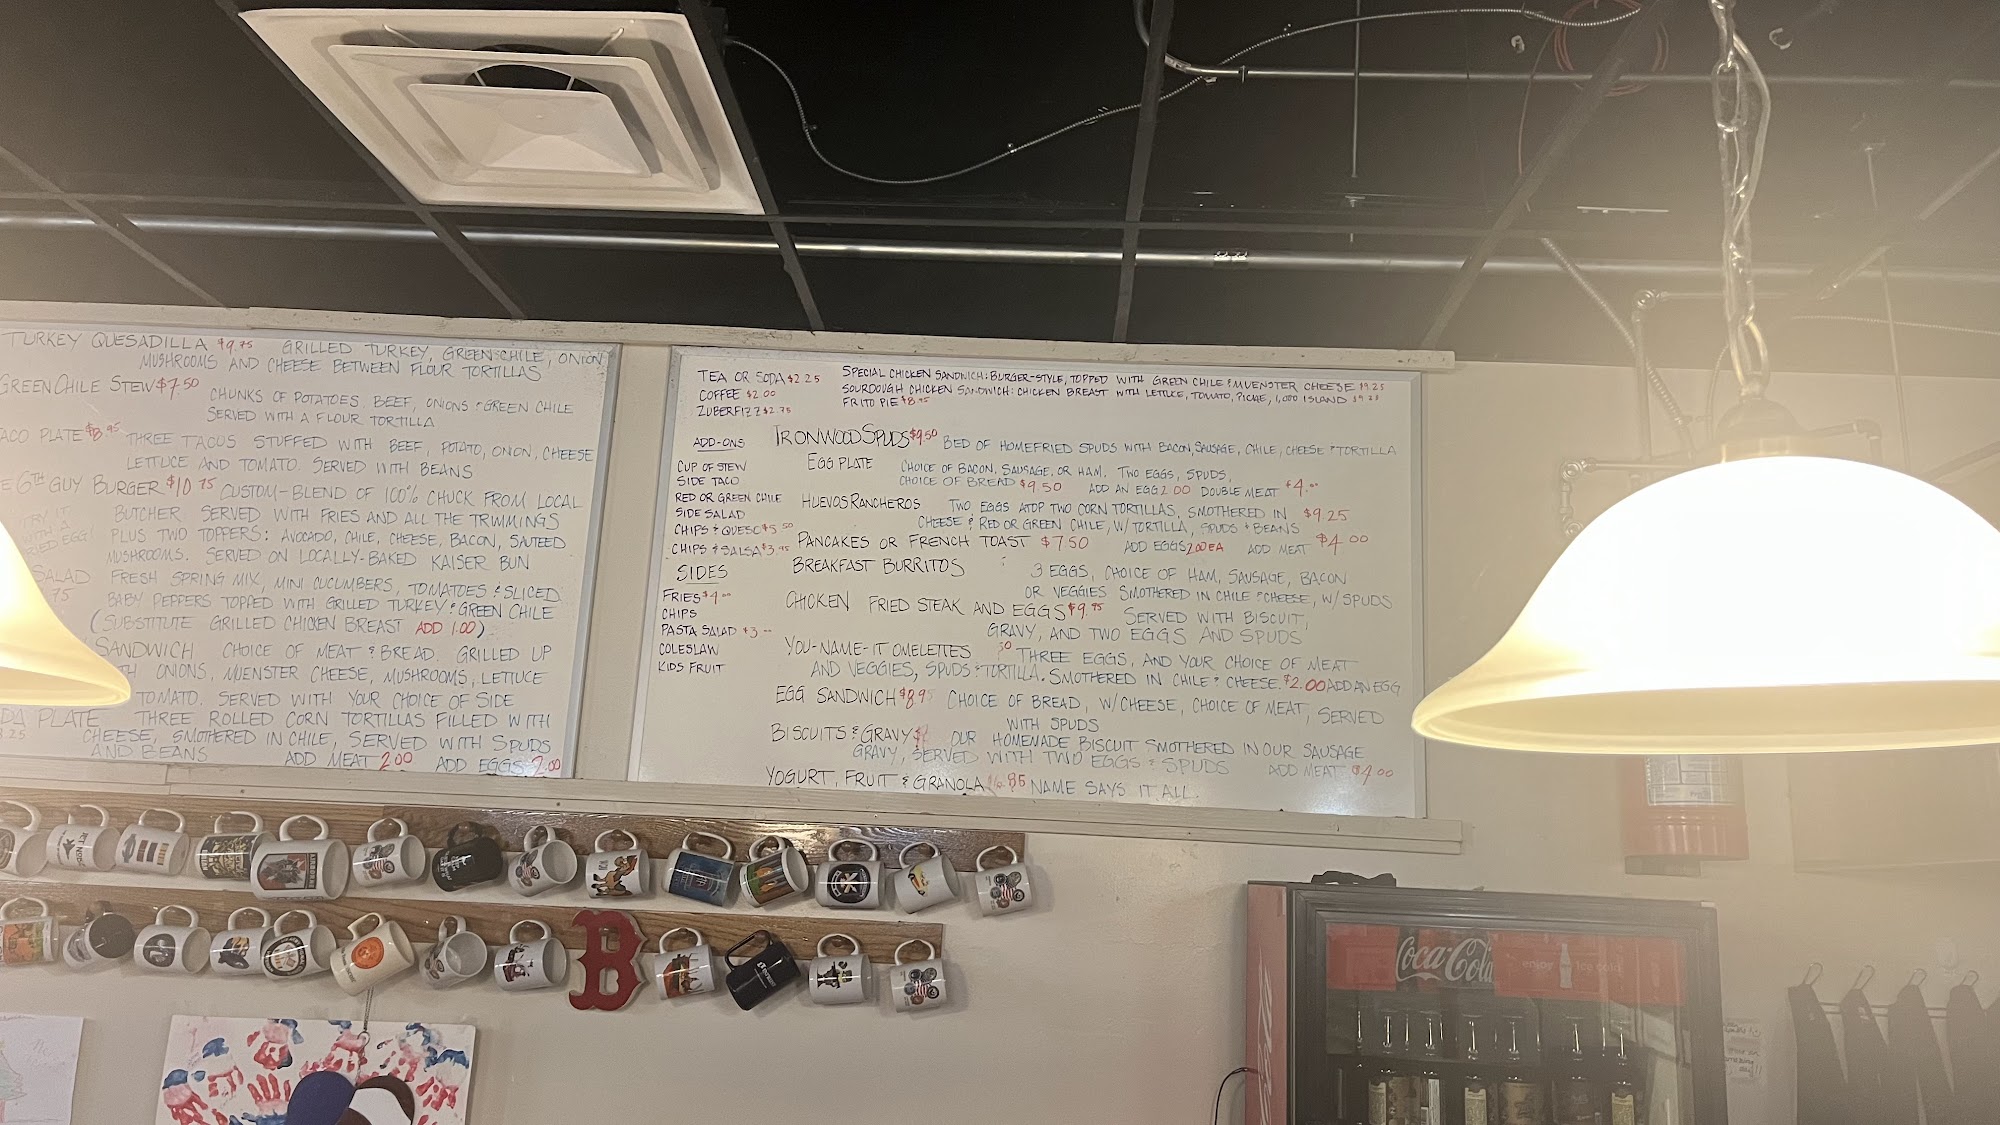 TURKEY QUESADILLA $9.75 GRILLED TURKEY, GREEN CHILE, ONION
MUSHROOMS AND CHEESE BETWEEN FLOUR TORTILLAS
GREEN CHILE STEW $7.50
CHUNKS OF POTATOES, BEEF, ONIONS & GREEN CHILE
SERVED WITH A FLOUR TORTILLA
TACO PLATE $8.95 THREE TACOS STUFFED WITH BEEF, POTATO, ONION, CHEESE
LETTUCE AND TOMATO. SERVED WITH BEANS
6TH GUY BURGER $10.75 CUSTOM-BLEND OF 100% CHUCK FROM LOCAL
BUTCHER SERVED WITH FRIES AND ALL THE TRIMMINGS
PLUS TWO TOPPERS: AVOCADO, CHILE, CHEESE, BACON, SAUTEED
MUSHROOMS. SERVED ON LOCALLY-BAKED KAISER BUN
TRY IT
WITH A
FRIED EGG!
SALAD FRESH SPRING MIX, MINI CUCUMBERS, TOMATOES & SLICED
75 BABY PEPPERS TOPPED WITH GRILLED TURKEY & GREEN CHILE
(SUBSTITUTE GRILLED CHICKEN BREAST ADD 1.00)
SANDWICH CHOICE OF MEAT & BREAD. GRILLED UP
ONIONS, MUENSTER CHEESE, MUSHROOMS, LETTUCE
TOMATO. SERVED WITH YOUR CHOICE OF SIDE
PLATE THREE ROLLED CORN TORTILLAS FILLED WITH
CHEESE, SMOTHERED IN CHILE, SERVED WITH SPUDS
AND BEANS ADD MEAT 2.00 ADD EGGS 2.00
TEA OR SODA $2.25
COFFEE $2.00
ZUBERFIZZ $2.75
SPECIAL CHICKEN SANDWICH: BURGER-STYLE, TOPPED WITH GREEN CHILE & MUENSTER CHEESE $9.25
SOURDOUGH CHICKEN SANDWICH: CHICKEN BREAST WITH LETTUCE, TOMATO, PICKLE, 1,000 ISLAND
FRITO PIE $8.95
ADD-ONS
CUP OF STEW
SIDE TACO
RED OR GREEN CHILE
SIDE SALAD
CHIPS & QUESO $5.50
CHIPS & SALSA $3.95
SIDES
FRIES $4.00
CHIPS
PASTA SALAD $3
COLESLAW
KIDS FRUIT
IRONWOOD SPUDS $9.50 BED OF HOMEFRIED SPUDS WITH BACON, SAUSAGE, CHILE, CHEESE & TORTILLA
EGG PLATE CHOICE OF BACON, SAUSAGE, OR HAM, TWO EGGS, SPUDS,
CHOICE OF BREAD $9.50 ADD AN EGG 2.00 DOUBLE MEAT $4.00
HUEVOS RANCHEROS TWO EGGS ATOP TWO CORN TORTILLAS, SMOTHERED IN $9.25
CHEESE & RED OR GREEN CHILE, W/TORTILLA, SPUDS & BEANS
PANCAKES OR FRENCH TOAST $7.50 ADD EGGS 2.00 EA ADD MEAT $4.00
BREAKFAST BURRITOS 3 EGGS, CHOICE OF HAM, SAUSAGE, BACON
OR VEGGIES SMOTHERED IN CHILE & CHEESE, W/SPUDS
CHICKEN FRIED STEAK AND EGGS $9.95 SERVED WITH BISCUIT,
GRAVY, AND TWO EGGS AND SPUDS
YOU-NAME-IT OMELETTES THREE EGGS, AND YOUR CHOICE OF MEAT
AND VEGGIES, SPUDS & TORTILLA. SMOTHERED IN CHILE & CHEESE. $2.00 ADD AN EGG
EGG SANDWICH $8.95 CHOICE OF BREAD, W/CHEESE, CHOICE OF MEAT, SERVED
WITH SPUDS
BISCUITS & GRAVY OUR HOMEMADE BISCUIT SMOTHERED IN OUR SAUSAGE
GRAVY, SERVED WITH TWO EGGS & SPUDS ADD MEAT $4.00
YOGURT, FRUIT & GRANOLA NAME SAYS IT ALL.
B
Coca-Cola
enjoy ice cold